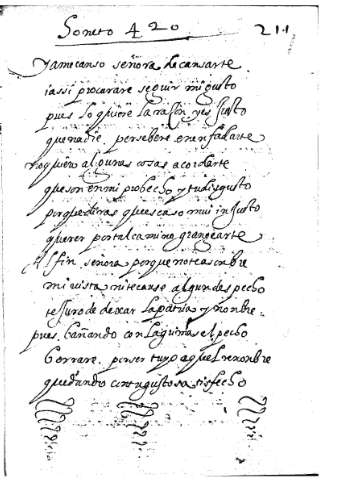 Soneto 420 211
Ya me canso señora de cansarte
i assi procurare seguir mi gusto
pues lo quiere la rason y es justo
que nadie persebere en enfadarte
no quiero algunas cosas acordarte
que son en mi probecho y tu disgusto
porque diras que es caso mui injusto
querer por tal camino grangearte
Al fin señora porque no te asonbre
mi vista ni te cause algun despecho
te juro de dexar la patria y nonbre
pues bañando con lagrimas el pecho
borrare por ser tuyo aquel renonbre
quedando con tu gusto satisfecho